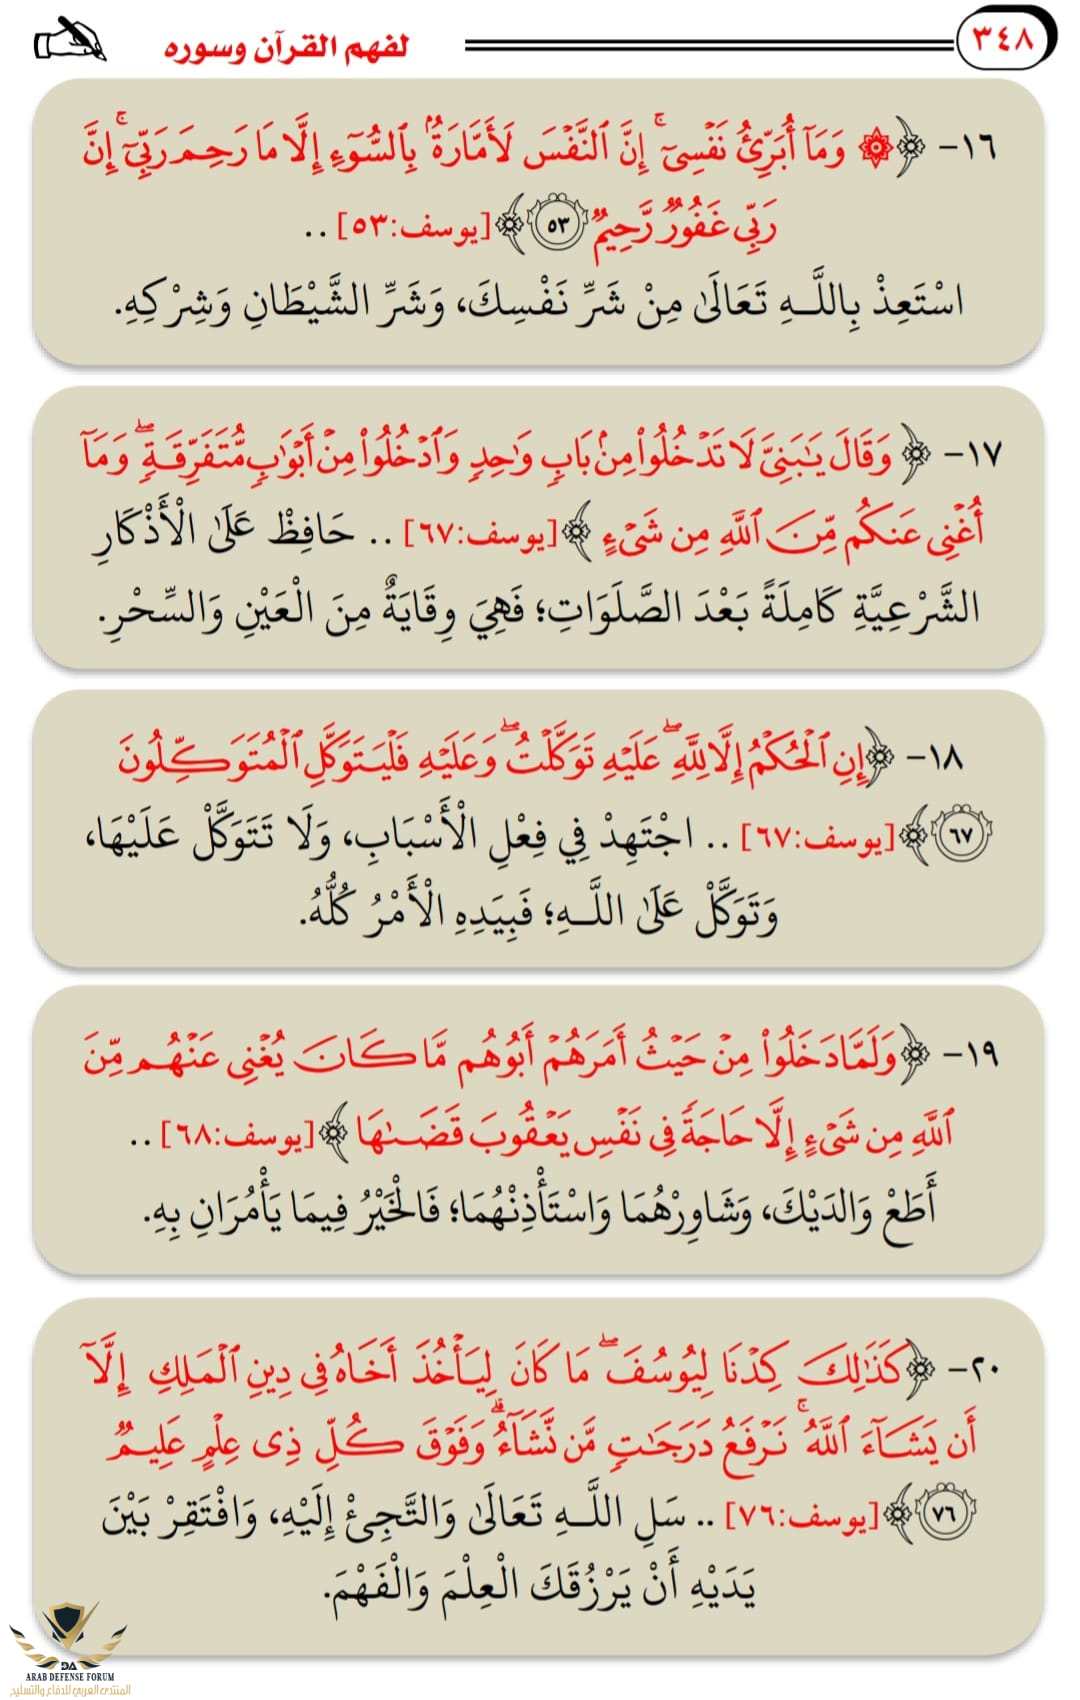 ٣٤٨
لفهم القرآن وسوره
١٦- ﴿ ۞ وَمَآ أُبَرِّئُ نَفْسِىٓ ۚ إِنَّ ٱلنَّفْسَ لَأَمَّارَةٌۢ بِٱلسُّوٓءِ إِلَّا مَا رَحِمَ رَبِّىٓ ۚ إِنَّ
رَبِّى غَفُورٌ رَّحِيمٌ ٥٣ ﴾ [يوسف:٥٣] ..
اسْتَعِذْ بِاللَّـهِ تَعَالَىٰ مِنْ شَرِّ نَفْسِكَ، وَشَرِّ الشَّيْطَانِ وَشِرْكِهِ.
١٧- ﴿ وَقَالَ يَـٰبَنِىَّ لَا تَدْخُلُوا۟ مِنۢ بَابٍ وَٰحِدٍ وَٱدْخُلُوا۟ مِنْ أَبْوَٰبٍ مُّتَفَرِّقَةٍ ۖ وَمَآ
أُغْنِى عَنكُم مِّنَ ٱللَّهِ مِن شَىْءٍ ﴾ [يوسف:٦٧] .. حَافِظْ عَلَىٰ الْأَذْكَارِ
الشَّرْعِيَّةِ كَامِلَةً بَعْدَ الصَّلَوَاتِ؛ فَهِيَ وِقَايَةٌ مِنَ الْعَيْنِ وَالسِّحْرِ.
١٨- ﴿ إِنِ ٱلْحُكْمُ إِلَّا لِلَّهِ ۖ عَلَيْهِ تَوَكَّلْتُ ۖ وَعَلَيْهِ فَلْيَتَوَكَّلِ ٱلْمُتَوَكِّلُونَ
٦٧ ﴾ [يوسف:٦٧] .. اجْتَهِدْ فِي فِعْلِ الْأَسْبَابِ، وَلَا تَتَوَكَّلْ عَلَيْهَا،
وَتَوَكَّلْ عَلَىٰ اللَّـهِ؛ فَبِيَدِهِ الْأَمْرُ كُلُّهُ.
١٩- ﴿ وَلَمَّا دَخَلُوا۟ مِنْ حَيْثُ أَمَرَهُمْ أَبُوهُم مَّا كَانَ يُغْنِى عَنْهُم مِّنَ
ٱللَّهِ مِن شَىْءٍ إِلَّا حَاجَةً فِى نَفْسِ يَعْقُوبَ قَضَىٰهَا ﴾ [يوسف:٦٨] ..
أَطَعْ وَالدَيْكَ، وَشَاوِرْهُمَا وَاسْتَأْذِنْهُمَا؛ فَالْخَيْرُ فِيمَا يَأْمُرَانِ بِهِ.
٢٠- ﴿ كَذَٰلِكَ كِدْنَا لِيُوسُفَ ۖ مَا كَانَ لِيَأْخُذَ أَخَاهُ فِى دِينِ ٱلْمَلِكِ إِلَّآ
أَن يَشَآءَ ٱللَّهُ ۚ نَرْفَعُ دَرَجَـٰتٍ مَّن نَّشَآءُ ۗ وَفَوْقَ كُلِّ ذِى عِلْمٍ عَلِيمٌ
٧٦ ﴾ [يوسف:٧٦] .. سَلِ اللَّـهِ تَعَالَىٰ وَالتَّجِئْ إِلَيْهِ، وَافْتَقِرْ بَيْنَ
يَدَيْهِ أَنْ يَرْزُقَكَ الْعِلْمَ وَالْفَهْمَ.
DA
ARAB DEFENSE FORUM
المنتدى العربي للدفاع والتسليح